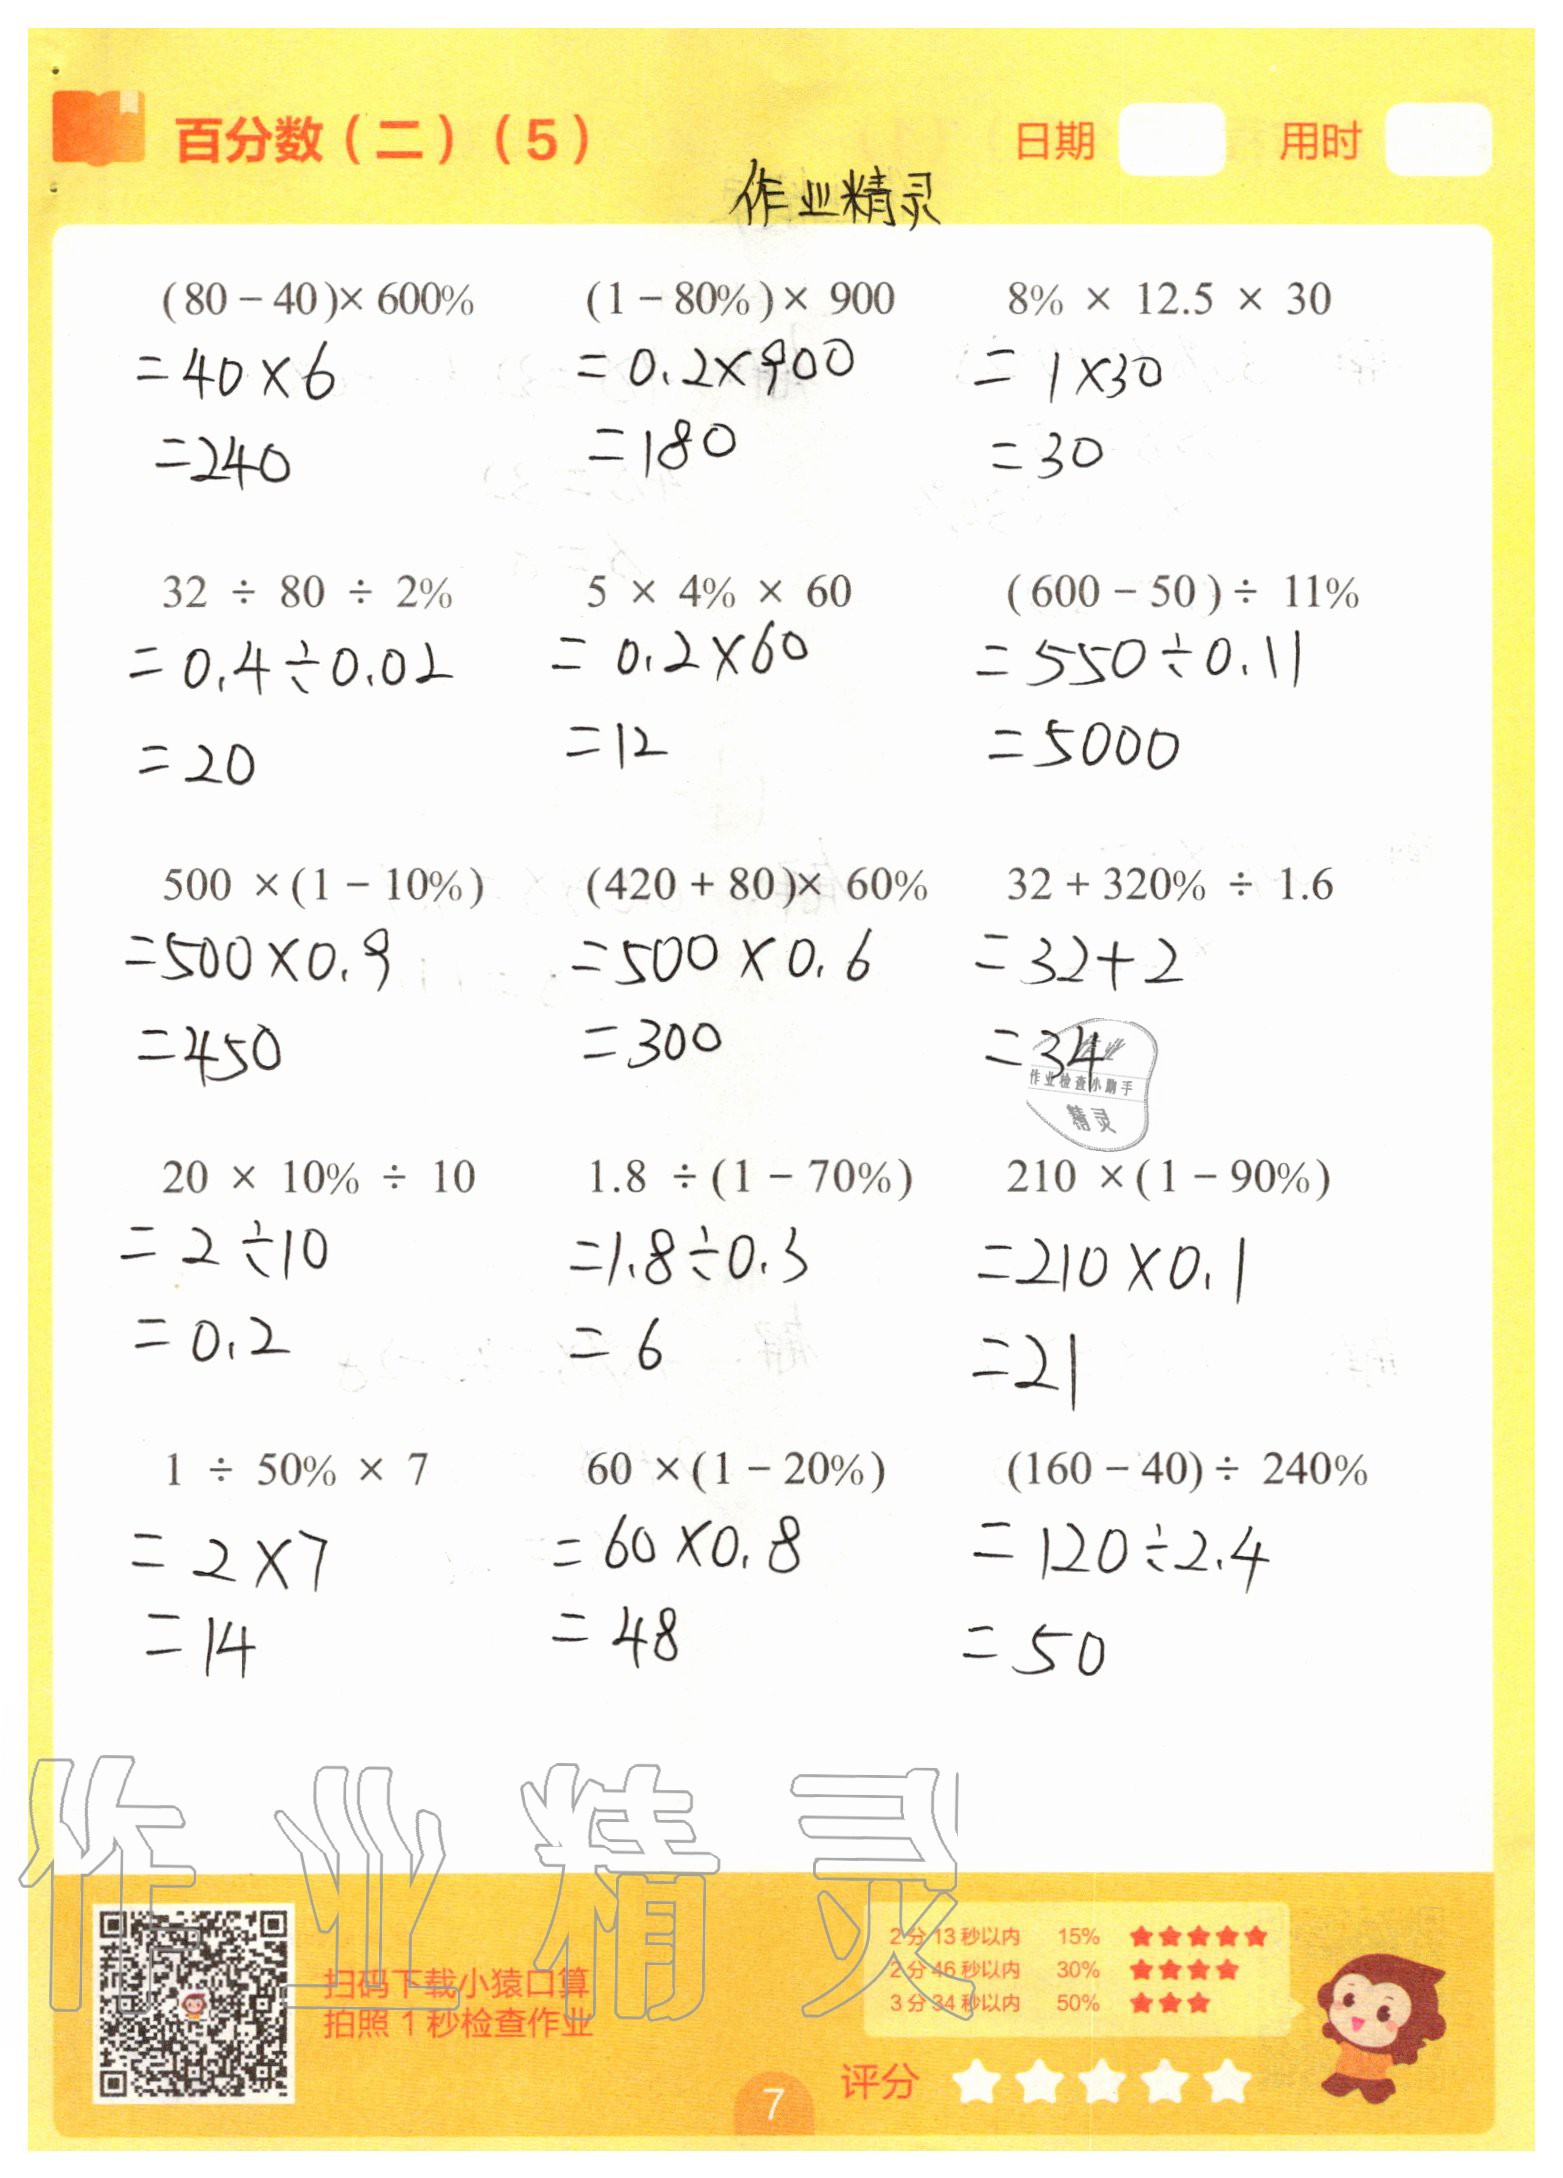 百分数（二）（5）	日期	用时
作业精灵
(80－40)× 600%	(1－80%)× 900	8% × 12.5 × 30
=40×6	=0.2×900	=1×30
=240	=180	=30
32 ÷ 80 ÷ 2%	5 × 4% × 60	(600－50)÷ 11%
=0.4÷0.02	=0.2×60	=550÷0.11
=20	=12	=5000
500 ×(1－10%)	(420 + 80)× 60%	32 + 320% ÷ 1.6
=500×0.9	=500×0.6	=32+2
=450	=300	=34
作业
作业检查小助手
精灵
20 × 10% ÷ 10	1.8 ÷(1－70%)	210 ×(1－90%)
=2÷10	=1.8÷0.3	=210×0.1
=0.2	=6	=21
1 ÷ 50% × 7	60 ×(1－20%)	(160－40)÷ 240%
=2×7	=60×0.8	=120÷2.4
=14	=48	=50
作业精灵
扫码下载小猿口算
拍照 1 秒检查作业
2 分 13 秒以内 15% ★★★★★
2 分 46 秒以内 30% ★★★★
3 分 34 秒以内 50% ★★★
评分 ☆☆☆☆☆
7